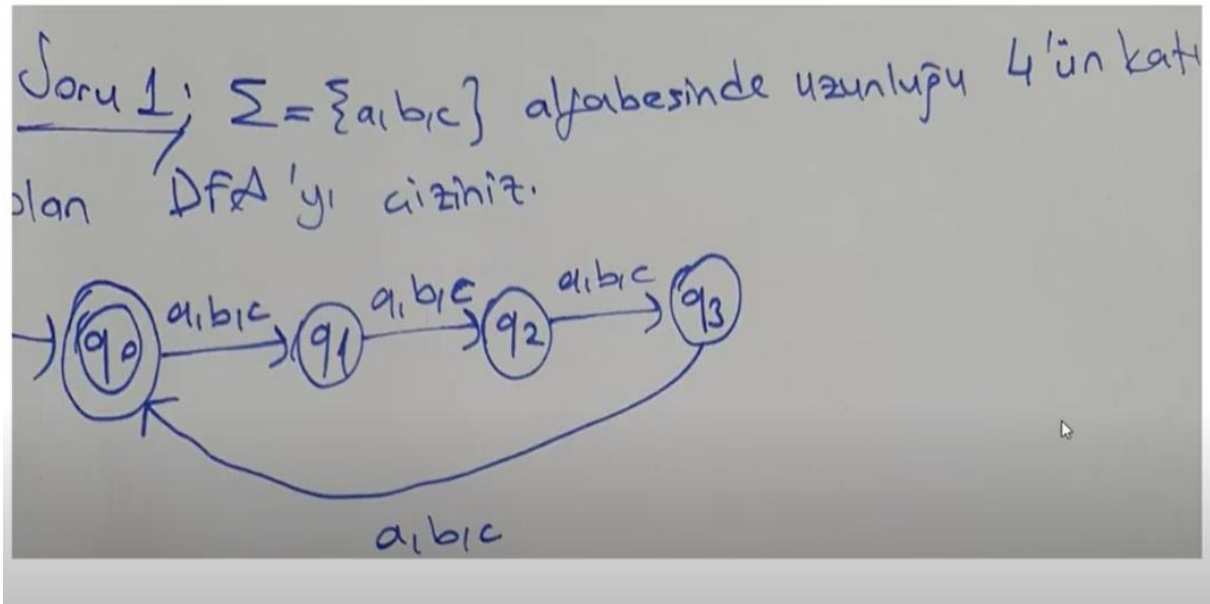 Soru 1; Σ = {a,b,c} alfabesinde uzunluğu 4'ün katı
olan DFA'yı çiziniz.
a,b,c a,b,c a,b,c
q0 q1 q2 q3
a,b,c